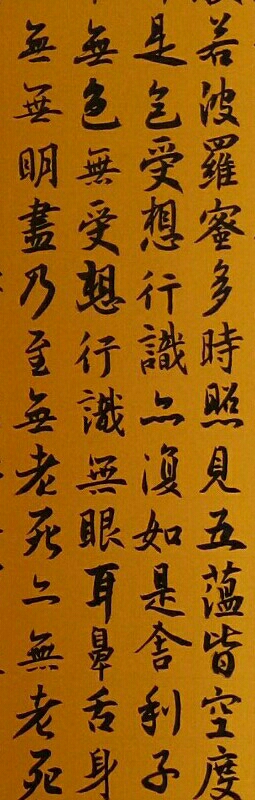 若波羅蜜多時照見五蘊皆空度
是色受想行識亦復如是舍利子
無色無受想行識無眼耳鼻舌身
無無明盡乃至無老死亦無老死